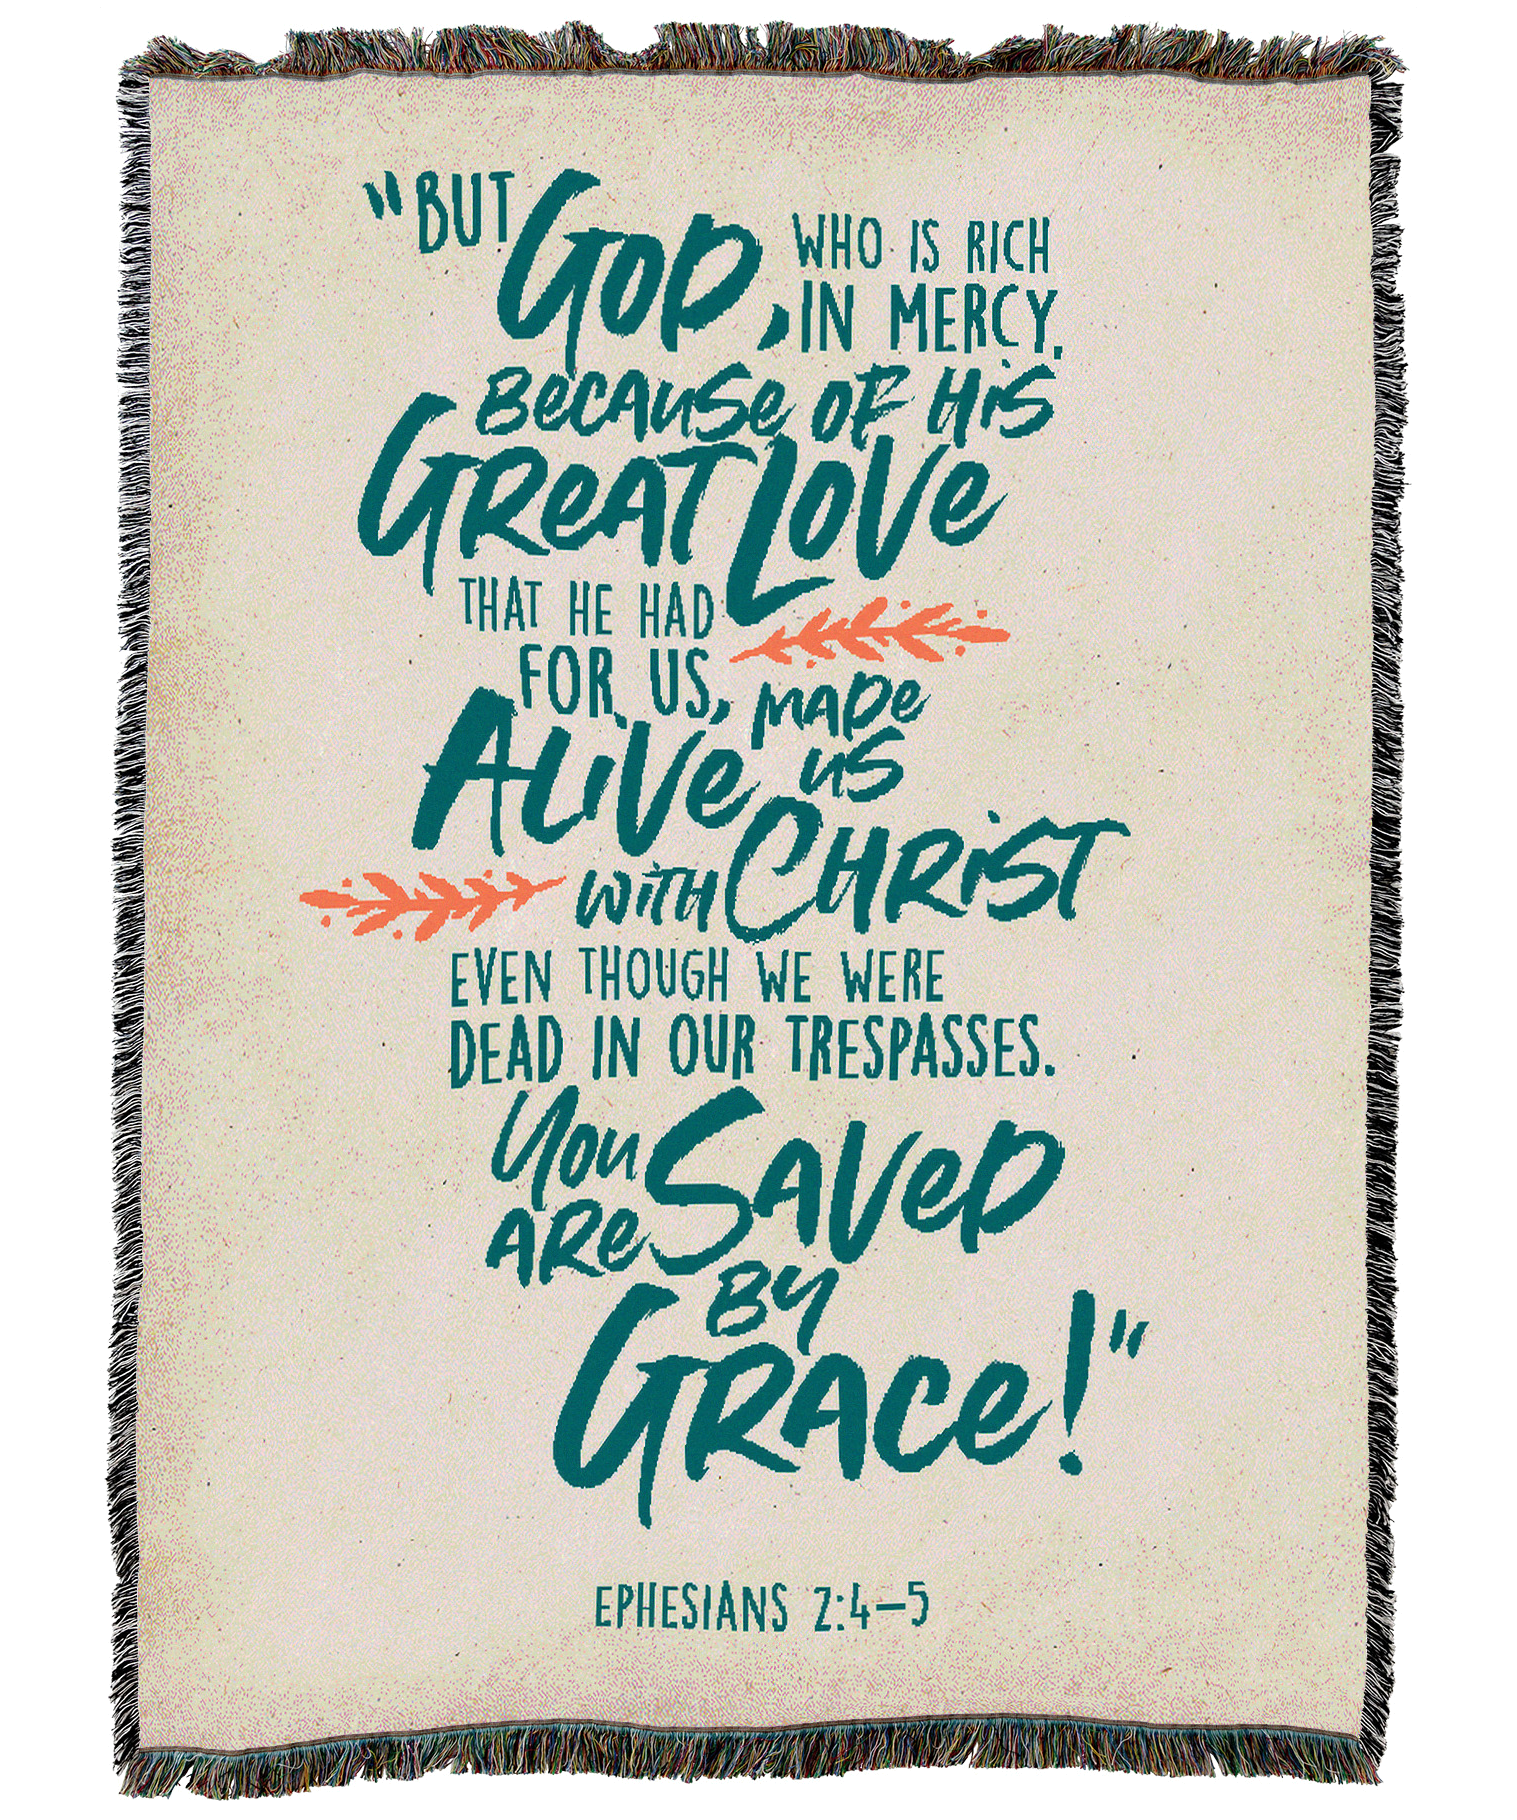 "BUT GOD, WHO IS RICH
IN MERCY,
BECAUSE OF HIS
GREAT LOVE
THAT HE HAD
FOR US,
MADE
US
ALIVE
WITH CHRIST
EVEN THOUGH WE WERE
DEAD IN OUR TRESPASSES.
YOU
ARE SAVED
BY
GRACE!"
EPHESIANS 2:4–5